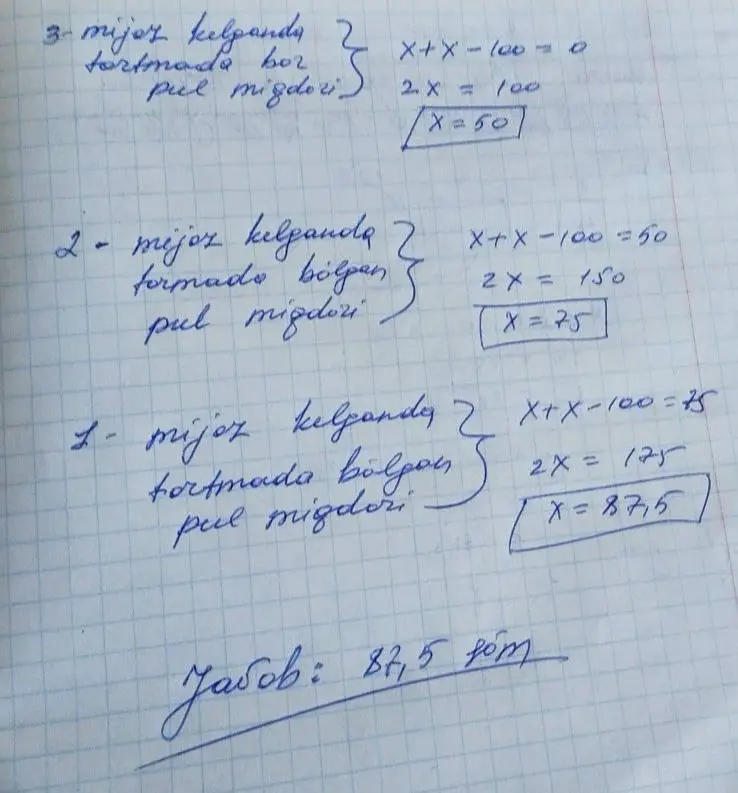 3- mijoz kelganda
tortmada bor
pul miqdori
x+x-100=0
2x = 100
x=50
2- mijoz kelganda
tormada bólgan
pul miqdori
x+x-100=50
2x = 150
x=75
1- mijoz kelganda
tortmada bólgan
pul miqdori
x+x-100=75
2x = 175
x=87,5
Жавоб: 87,5 sóm